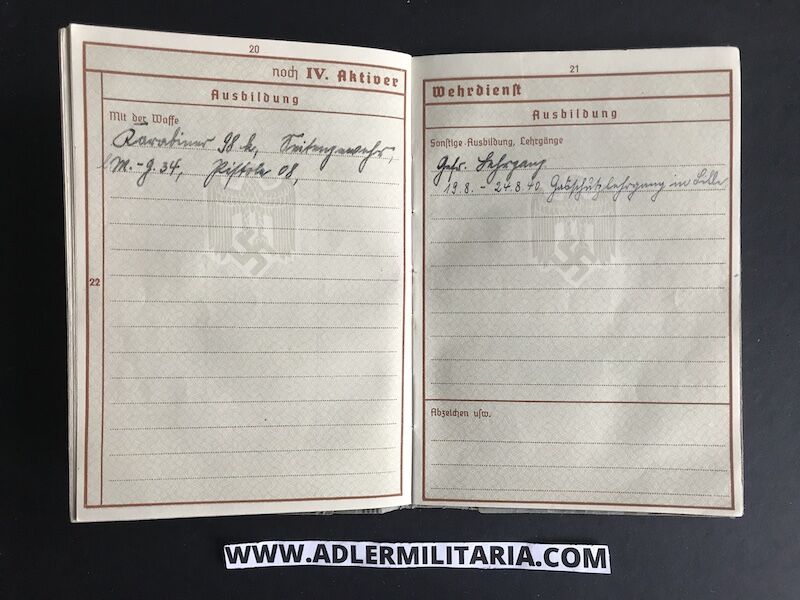 20
noch IV. Aktiver
Ausbildung
Mit der Waffe
Karabiner 98 k, Seitengewehr,
l.M.-G. 34, Pistole 08,
22
21
Wehrdienst
Ausbildung
Sonstige Ausbildung, Lehrgänge
Gefr. Lehrgang
19.8. - 24.8.40. Gasschutzlehrgang in Lille
Abzeichen usw.
WWW.ADLERMILITARIA.COM